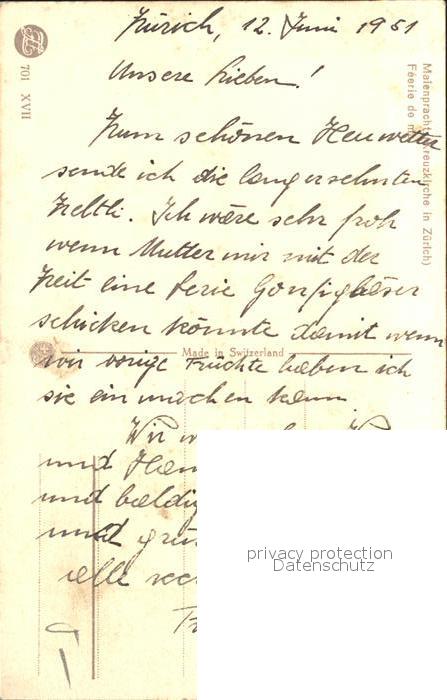 Zürich, 12. Juni 1951
Unsere Lieben!
Zum schönen Heuwetter
sende ich die langersehnten
Zeltli. Ich wäre sehr froh
wenn Mutter mir mit der
Zeit eine Serie Gonfigläser
schicken könnte damit wenn
wir vorige Früchte haben ich
sie ein machen kann
Wir
und
und
und
alle
701 XVII
Maienpracht
Kreuzkirche in Zürich)
Féerie de
Made in Switzerland
privacy protection
Datenschutz